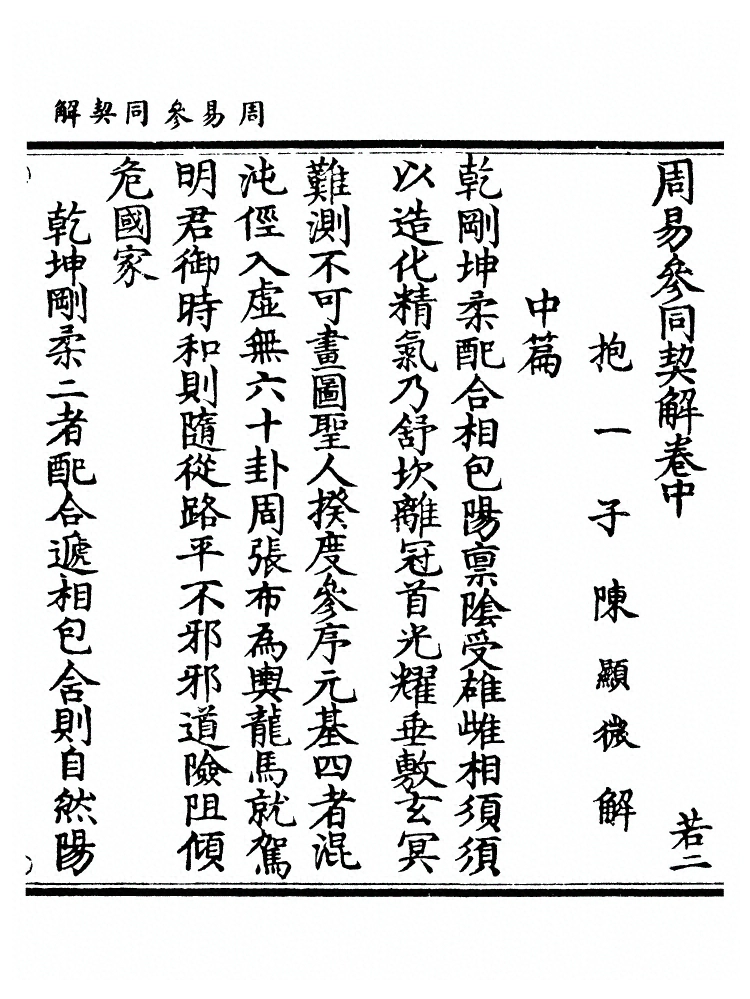 周易參同契解
周易參同契解卷中
若二
抱一子陳顯微解
中篇
乾剛坤柔配合相包陽禀隂受雄雌相須須
以造化精氣乃舒坎離冠首光耀垂敷玄冥
難測不可畫圖聖人揆度參序元基四者混
沌徑入虛無六十卦周張布為輿龍馬就駕
明君御時和則隨從路平不邪邪道險阻傾
危國家
乾坤剛柔二者配合遞相包含則自然陽